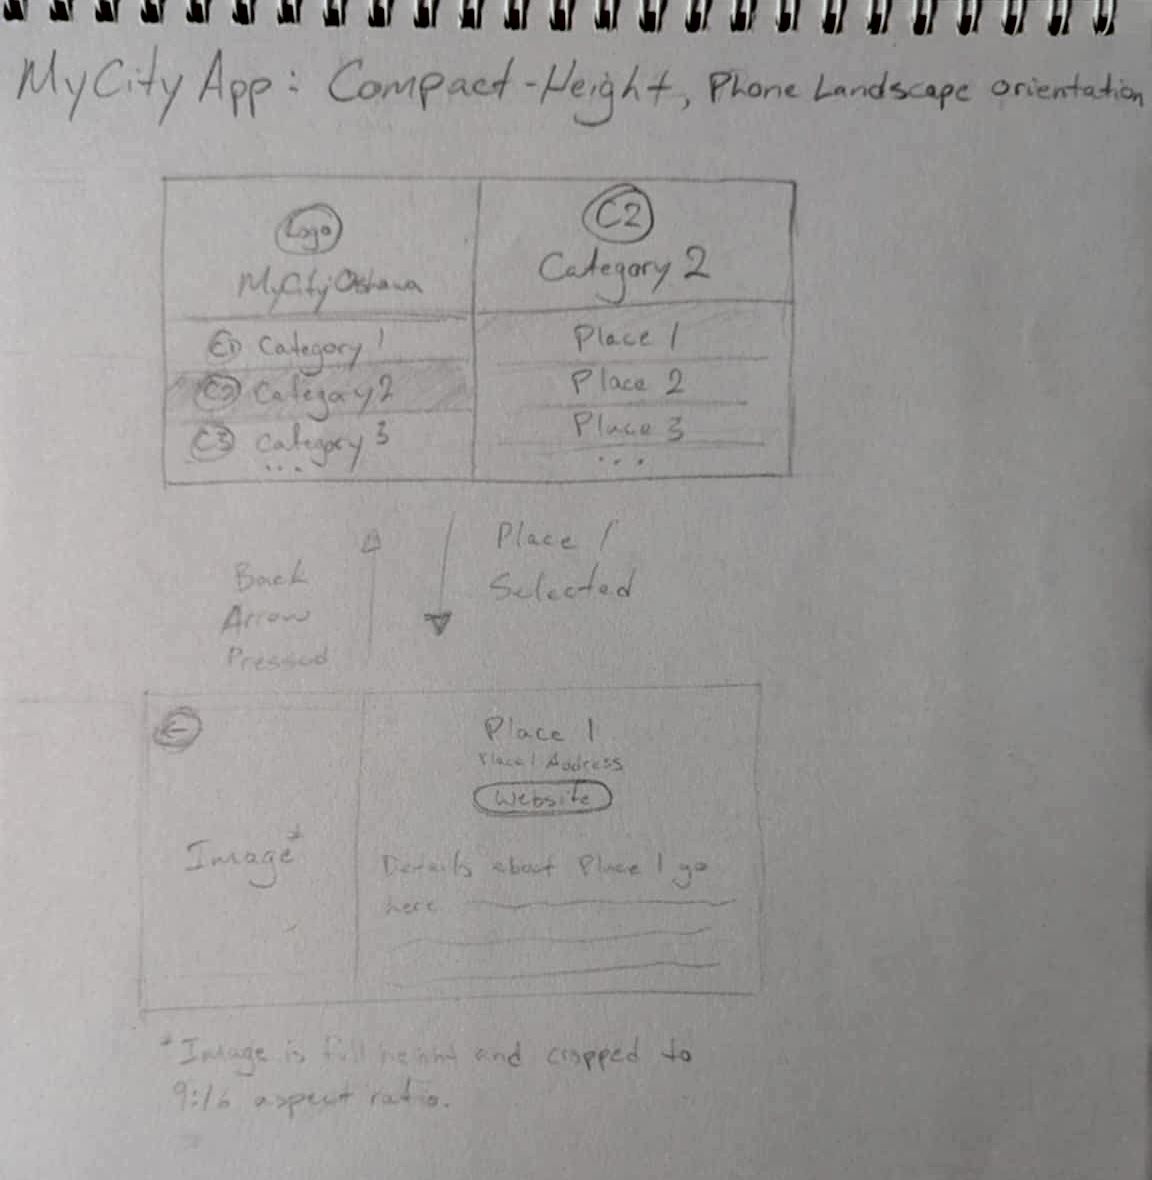 MyCity App: Compact-Height, Phone Landscape orientation
Logo
MyCity: Oshawa
C1 Category 1
C2 Category 2
C3 Category 3
...
C2
Category 2
Place 1
Place 2
Place 3
...
Back
Arrow
Pressed
Place 1
Selected
Image*
Place 1
Place 1 Address
Website
Details about Place 1 go
here
*Image is full height and cropped to
9:16 aspect ratio.